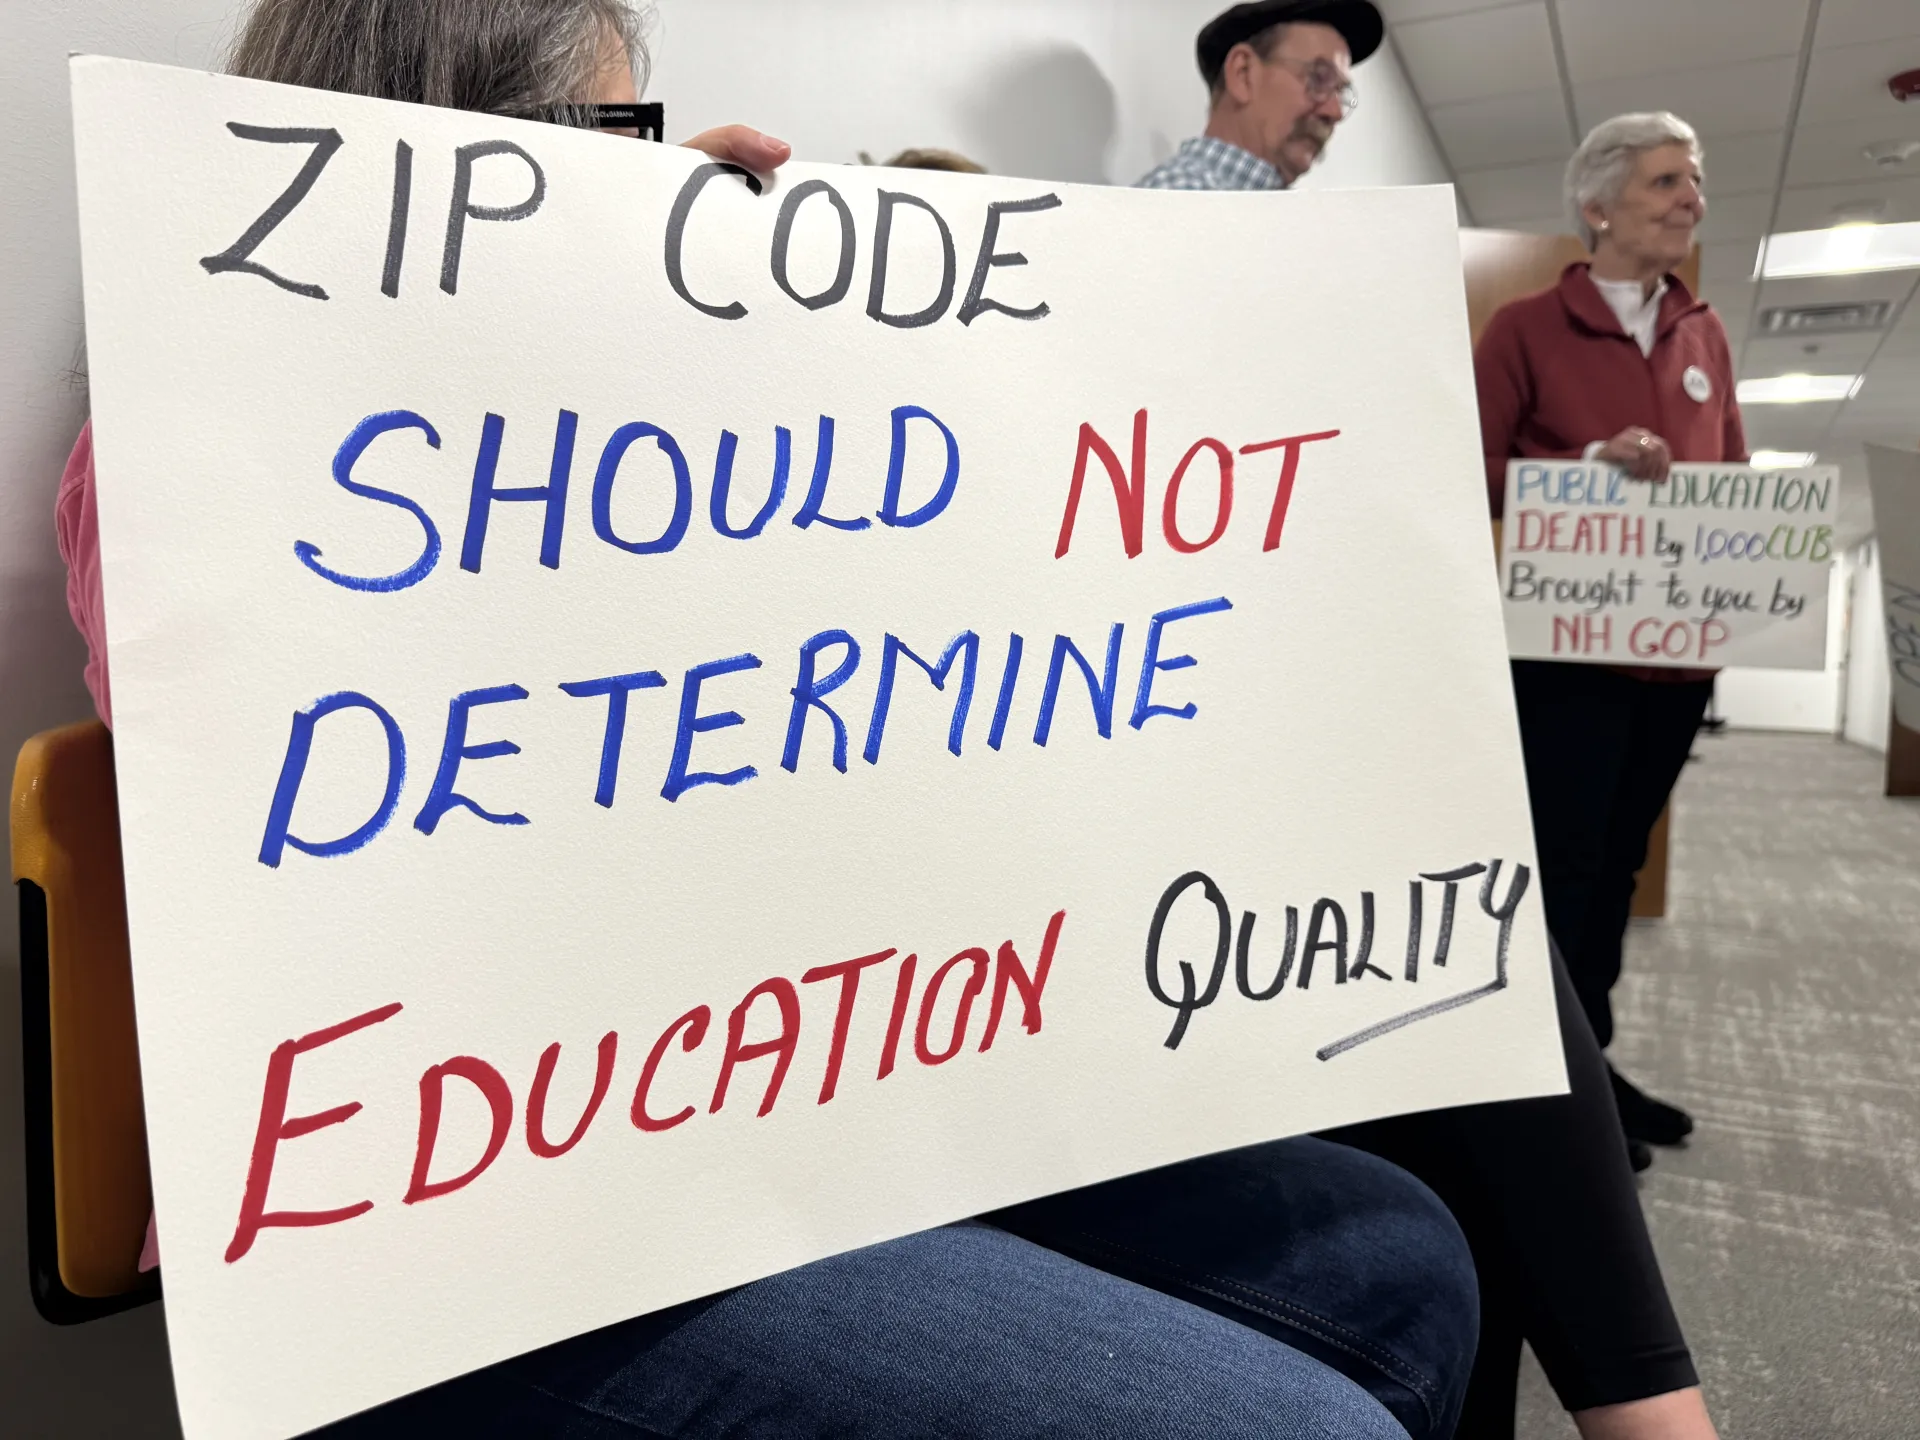 ZIP CODE
SHOULD NOT
DETERMINE
EDUCATION QUALITY
PUBLIC EDUCATION
DEATH by 1,000 CUB
Brought to you by
NH GOP